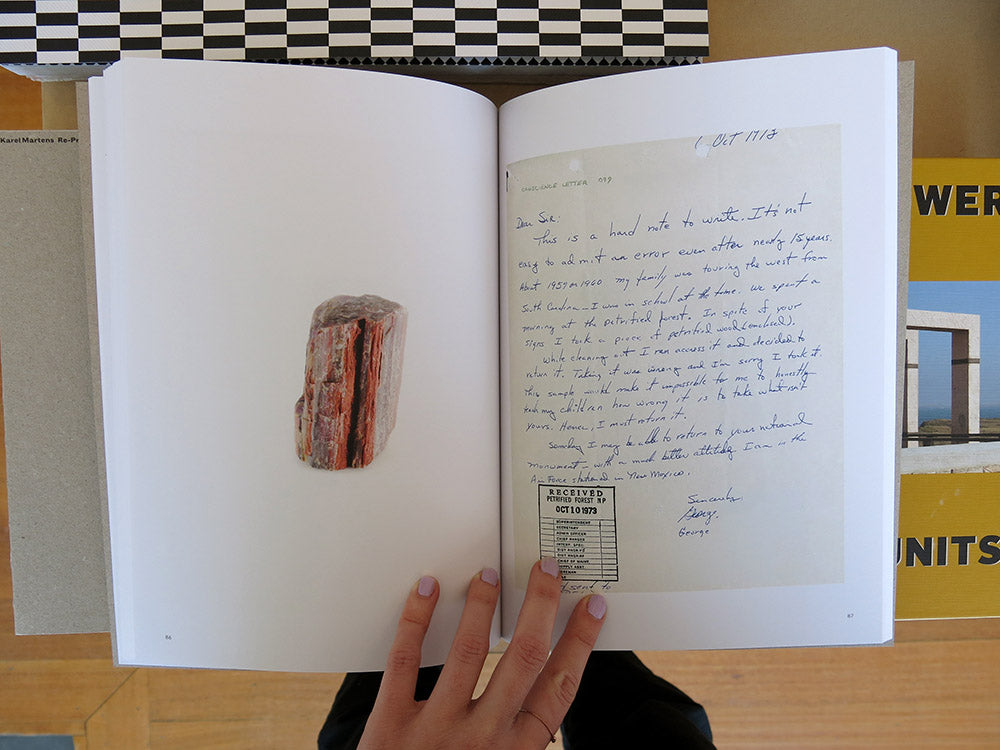 Karel Martens Re-Pr
WER
UNITS
86
1 Oct 1973
CONSCIENCE LETTER 099
Dear Sir:
This is a hard note to write. It's not
easy to admit an error even after nearly 15 years.
About 1959 or 1960 my family was touring the west from
South Carolina - I was in school at the time. We spent a
morning at the petrified forest. In spite of your
signs I took a piece of petrified wood (enclosed).
While cleaning out I ran across it and decided to
return it. Taking it was wrong and I'm sorry I took it.
This sample would make it impossible for me to honestly
teach my children how wrong it is to take what isn't
yours. Hence, I must return it.
Someday I may be able to return to your national
monument - with a much better attitude. I am in the
Air Force stationed in New Mexico.
Sincerely,
George
George
RECEIVED
PETRIFIED FOREST NP
OCT 10 1973
SUPERINTENDENT
SECRETARY
ADMIN OFFICER
CHIEF RANGER
INTERP. SPEC.
DIST RNGR
DIST RNGR
CHIEF OF MAINT.
SUPPLY ASST.
sent to
87